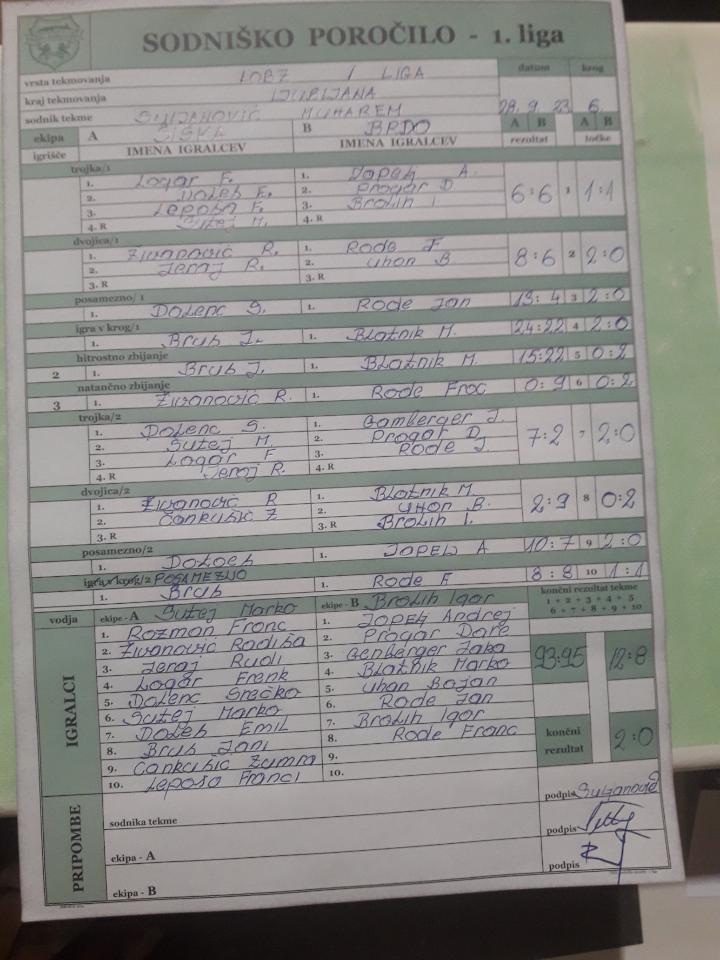 SODNIŠKO POROČILO - 1. liga
vrsta tekmovanja LOBZ 1 LIGA datum krog
kraj tekmovanja LJUBLJANA
sodnik tekme SULJANOVIĆ MUHAREM 29.9.23 6.
ekipa A ŠIŠKA B BRDO A B A B
igrišče IMENA IGRALCEV IMENA IGRALCEV rezultat točke
trojka/1
1. Logar F. 1. JOPELJ A. 6:6 1 1:1
2. DOLEH E. 2. Progar D.
3. LEPOŠA F. 3. BROLIH I.
4. R Šutej M. 4. R
dvojica/1
1. Živanović R. 1. Rode F 8:6 2 2:0
2. Jeraj R. 2. Uhon B
3. R 3. R
posamezno/1
1. DOLENC S. 1. Rode Jan 13:4 3 2:0
igra v krog/1
1. Brub J. 1. BLATNIK M. 24:22 4 2:0
hitrostno zbijanje
2 1. Brub J. 1. BLATNIK M. 15:22 5 0:2
natančno zbijanje
3 1. Živanović R. 1. Rode Franc 0:9 6 0:2
trojka/2
1. DOLENC S. 1. Gamberger J. 7:2 7 2:0
2. Šutej M. 2. Progar D
3. Logar F 3. Rode J.
4. R Jeraj R. 4. R
dvojica/2
1. Živanović R 1. BLATNIK M. 2:9 8 0:2
2. Čankubić Z 2. UHON B.
3. R 3. R BROLIH I.
posamezno/2
1. DOLEH 1. JOPELJ A 10:7 9 2:0
igra v krog/2 POSAMEZNO
1. Brub 1. Rode F 8:8 10 1:1
vodja ekipe - A Šutej Marko ekipe - B Brolih Igor končni rezultat tekme
1 + 2 + 3 + 4 + 5
6 + 7 + 8 + 9 + 10
IGRALCI
1. Rozman Franc 1. JOPELJ Andrej
2. Živanović Radiša 2. Progar Dare 93:95 12:8
3. Jeraj Rudi 3. Genberger Jaka
4. Logar Frenk 4. BLATNIK Marko
5. DOLENC Srečko 5. Uhon Bojan
6. Šutej Marko 6. Rode Jan
7. DOLEH EMIL 7. BROLIH Igor končni rezultat 2:0
8. Brub Jani 8. Rode Franc
9. Čankubić Zumra 9.
10. Leposa Franci 10.
PRIPOMBE
sodnika tekme podpis Suljanović
ekipa - A podpis
ekipa - B podpis